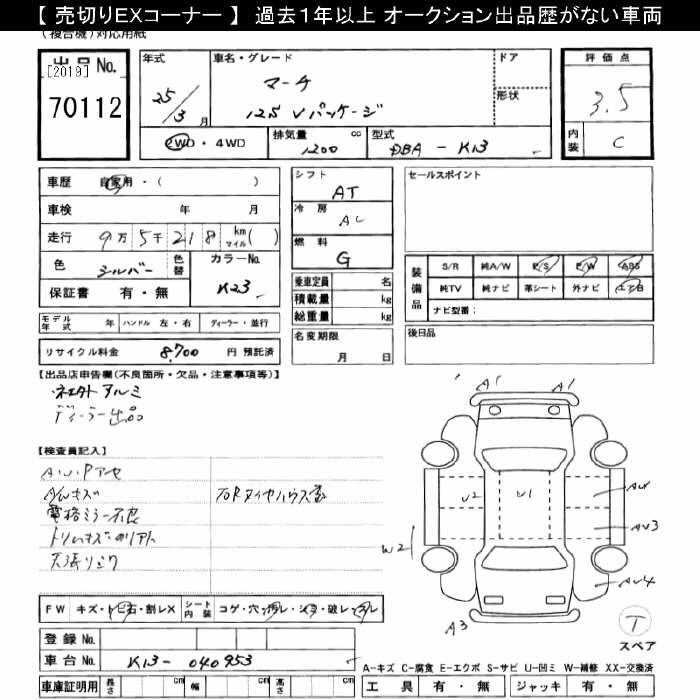 【 売切りEXコーナー 】 過去１年以上 オークション出品歴がない車両
(複合機)対応用紙
出品No.
[2019]
70112
年式
25/3月
車名・グレード
マーチ
125 Vパッケージ
ドア
形状
評価点
3.5
内装
C
2WD・4WD
排気量 cc
1200
型式
DBA - K13
車歴 自家用・( )
車検 年 月
走行 9万 5千 218 km マイル( )
色 シルバー 色替 カラーNo. K23
保証書 有・無
シフト
AT
冷房
AC
燃料
G
乗車定員 名
積載量 kg
総重量 kg
名変期限
月 日
セールスポイント
装備品
S/R 純A/W P/S P/W ABS
純TV 純ナビ 革シート 外ナビ エアB
ナビ型番：
後日品
モデル年式 年 ハンドル 左・右 ディーラー・並行
リサイクル料金 8,700 円 預託済
【出品店申告欄(不良箇所・欠品・注意事項等)】
アルミ
ディーラー出品
【検査員記入】
A・U・Pアセ
A/Wキズ
電格ミラー不良
天張リシワ
FW キズ・トビ石・割レX シート内装 コゲ・穴・擦レ・シミ・破レ・
登録No.
車台No. K13- 040953
車庫証明用 長さ cm 幅 cm 高さ cm
A1
A1
U2
U1
AU
AU3
W2
AU4
A3
T
スペア
A-キズ C-腐食 E-エクボ S-サビ U-凹ミ W-補修 XX-交換済
工具 有・無 ジャッキ 有・無